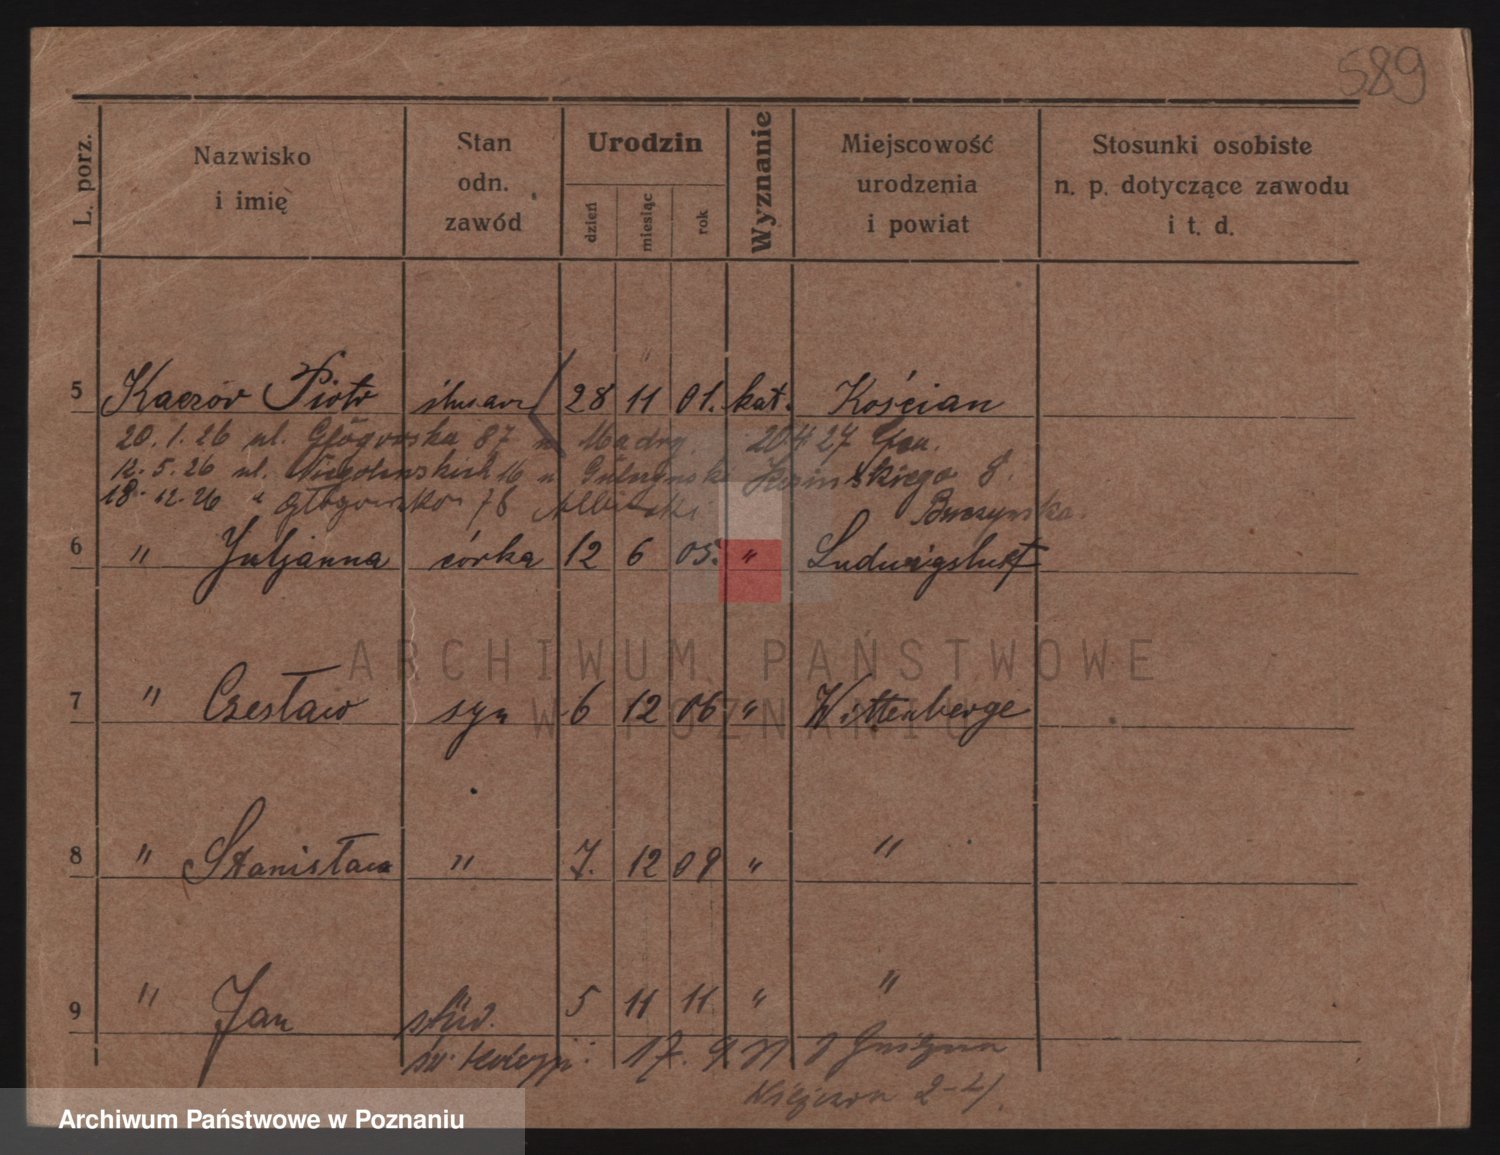 589
L. porz.
Nazwisko
i imię
Stan
odn.
zawód
Urodzin
dzień
miesiąc
rok
Wyznanie
Miejscowość
urodzenia
i powiat
Stosunki osobiste
n. p. dotyczące zawodu
i t. d.
5 Kaczór Piotr ślusarz 28 11 01. kat. Kościan
20. 1. 26 ul. Głogowska 87 u Mądry. 20 4 27
12. 5. 26 ul. Niegolewskich 16 u
18. 12. 26 " Głogowska 78
6 " Juljanna córka 12 6 05. " Ludwigslust
7 " Czesław syn 6 12 06 " Wittenberge
8 " Stanisław " 7. 12 09 " "
9 " Jan stud. 5 11 11 " "
św. teologji: 17. 9 31 z Gniezna
2-4
ARCHIWUM PAŃSTWOWE
W POZNANIU
Archiwum Państwowe w Poznaniu